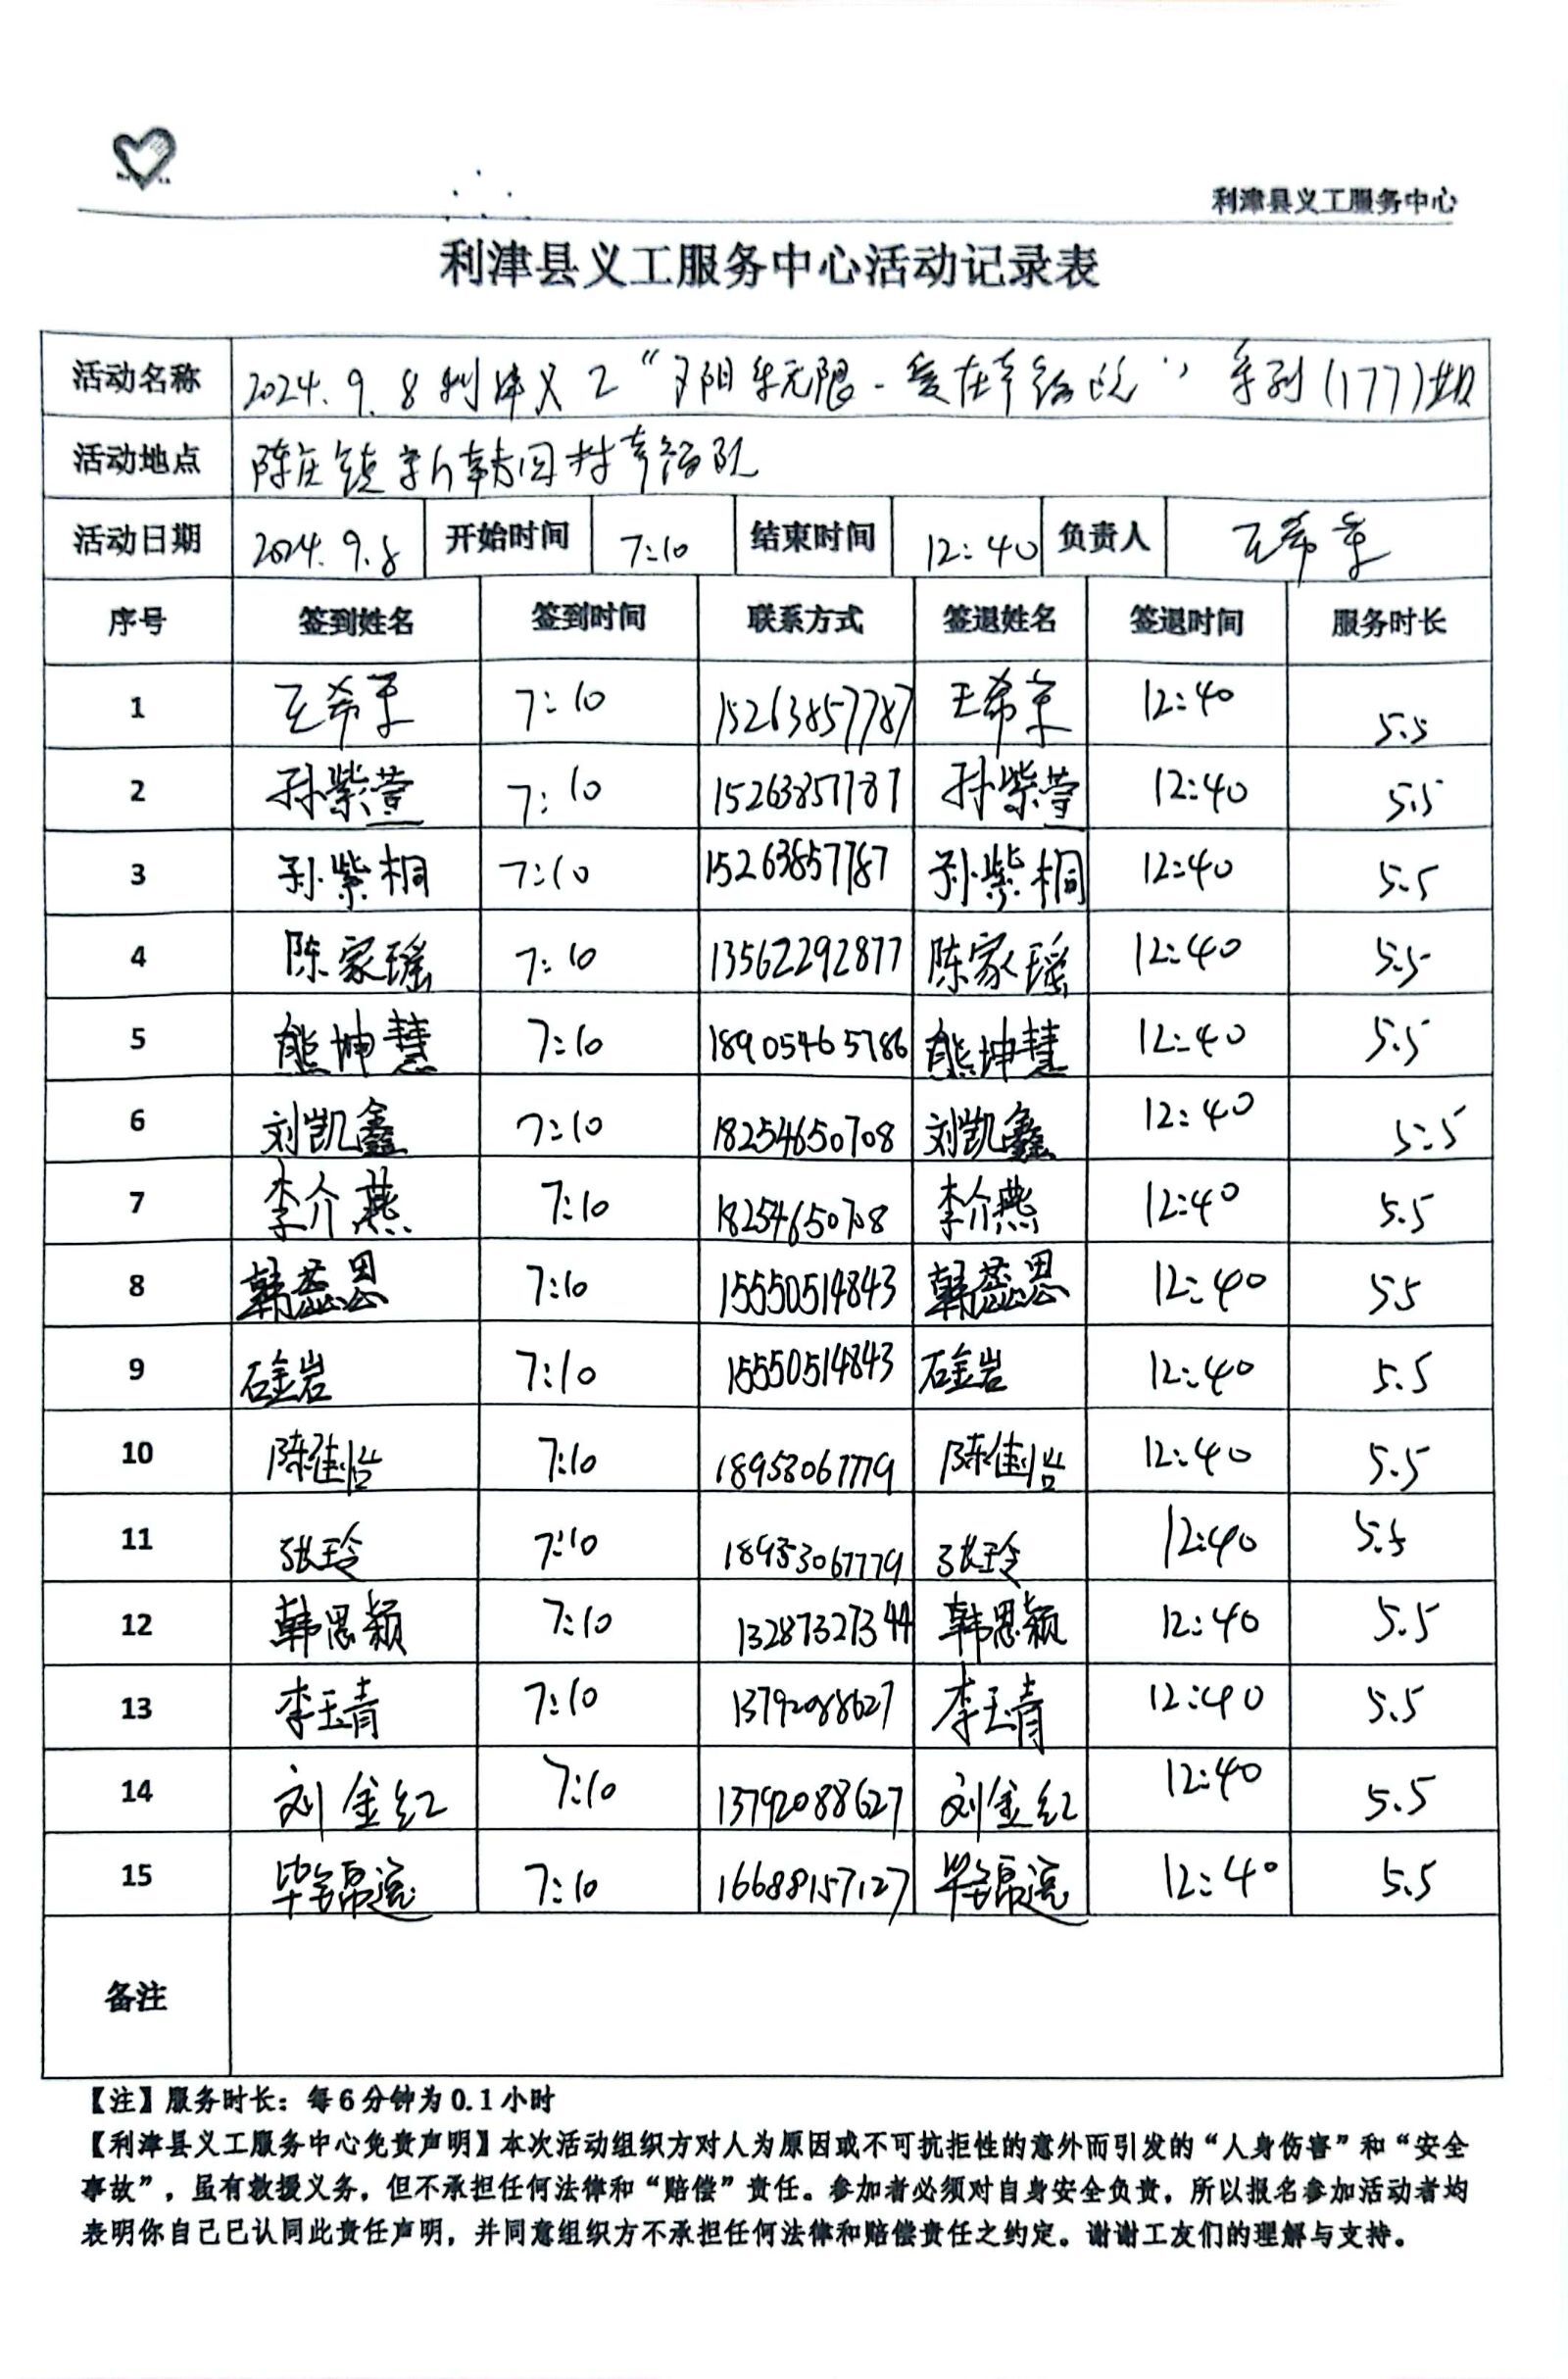 利津县义工服务中心
利津县义工服务中心活动记录表
活动名称 2024.9.8利津义工“夕阳乐无限-爱在幸福院”系列(177)期
活动地点 陈庄镇新韩园村幸福院
活动日期 2024.9.8 开始时间 7:10 结束时间 12:40 负责人 王希
序号 签到姓名 签到时间 联系方式 签退姓名 签退时间 服务时长
1 王希 7:10 15263857787 王希 12:40 5.5
2 孙紫萱 7:10 15263857787 孙紫萱 12:40 5.5
3 孙紫桐 7:10 15263857787 孙紫桐 12:40 5.5
4 陈家瑶 7:10 13562292877 陈家瑶 12:40 5.5
5 熊坤慧 7:10 18905465786 熊坤慧 12:40 5.5
6 刘凯鑫 7:10 18254650708 刘凯鑫 12:40 5.5
7 李介燕 7:10 18254650708 李介燕 12:40 5.5
8 韩蕊思 7:10 15550514843 韩蕊思 12:40 5.5
9 石金岩 7:10 15550514843 石金岩 12:40 5.5
10 陈佳怡 7:10 18953067779 陈佳怡 12:40 5.5
11 张玲 7:10 18953067779 张玲 12:40 5.5
12 韩思颖 7:10 13287327344 韩思颖 12:40 5.5
13 李玉青 7:10 13792088627 李玉青 12:40 5.5
14 刘金红 7:10 13792088627 刘金红 12:40 5.5
15 毕锦远 7:10 16688157127 毕锦远 12:40 5.5
备注
【注】服务时长：每6分钟为0.1小时
【利津县义工服务中心免责声明】本次活动组织方对人为原因或不可抗拒性的意外而引发的“人身伤害”和“安全
事故”，虽有救援义务，但不承担任何法律和“赔偿”责任。参加者必须对自身安全负责，所以报名参加活动者均
表明你自己已认同此责任声明，并同意组织方不承担任何法律和赔偿责任之约定。谢谢工友们的理解与支持。